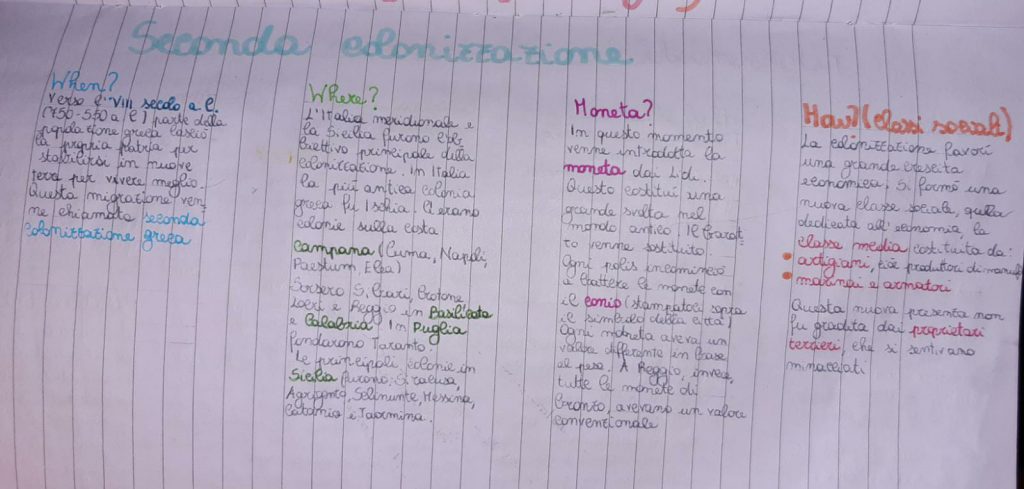 Seconda colonizzazione
When?
Verso l'VIII secolo a C.
(750-550 a C) parte della
popolazione greca lasciò
la propria patria per
stabilirsi in nuove
terra per vivere meglio.
Questa migrazione ven-
ne chiamata seconda
colonizzazione greca
Where?
L'Italia meridionale e
la Sicilia furono l'ob-
biettivo principale della
colonizzazione. In Italia
la più antica colonia
greca fu Ischia. C'erano
colonie sulla costa
campana (Cuma, Napoli,
Paestum, Elea)
Sorsero Sibari, Crotone,
Locri e Reggio in Basilicata
e Calabria. In Puglia
fondarono Taranto
Le principali colonie in
Sicilia furono: Siracusa,
Agrigento, Selinunte, Messina,
Catania e Taormina.
Moneta?
In questo momento
venne introdotta la
moneta dai Lidi.
Questo costituì una
grande svolta nel
mondo antico. Il barat-
to venne sostituito.
Ogni polis incominciò
a battere le monete con
il conio (stampatoci sopra
il simbolo della città)
Ogni moneta aveva un
valore differente in base
al peso. A Reggio, invece,
tutte le monete di
bronzo, avevano un valore
convenzionale
How? (classi sociali)
La colonizzazione favorì
una grande crescita
economica. Si formò una
nuova classe sociale, quella
dedicata all'economia, la
classe media costituita da:
• artigiani, cioè produttori di manuf
• marinai e armatori
Questa nuova presenza non
fu gradita dai proprietari
terrieri, che si sentivano
minacciati